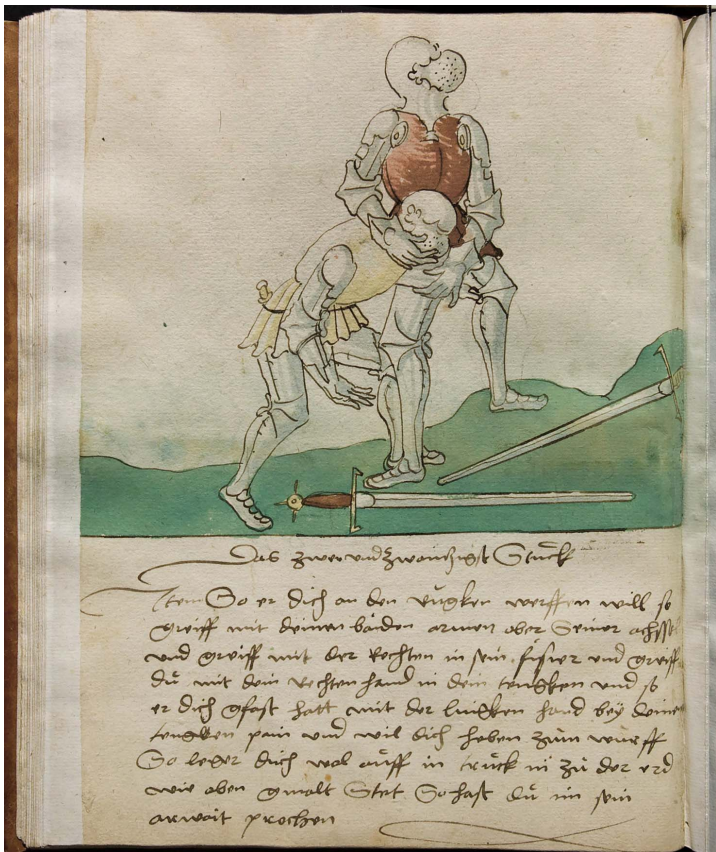 Das zwei und zwaintzigst Stuck
Item So er dich an den rugken werffen will so
greiff mit deinen baiden armen ober Seinen achsse
und greiff mit der rechten in sein fisier und greiff
du mit dein rechten hand in dein tengken und so
er dich gfast hatt mit der lingken hand bey deine
tengken pain und wil dich heben zum wurff
So leger dich wol auff in truck in zu der erd
wie oben gmalt Stet So hast du im sein
arwait prochen